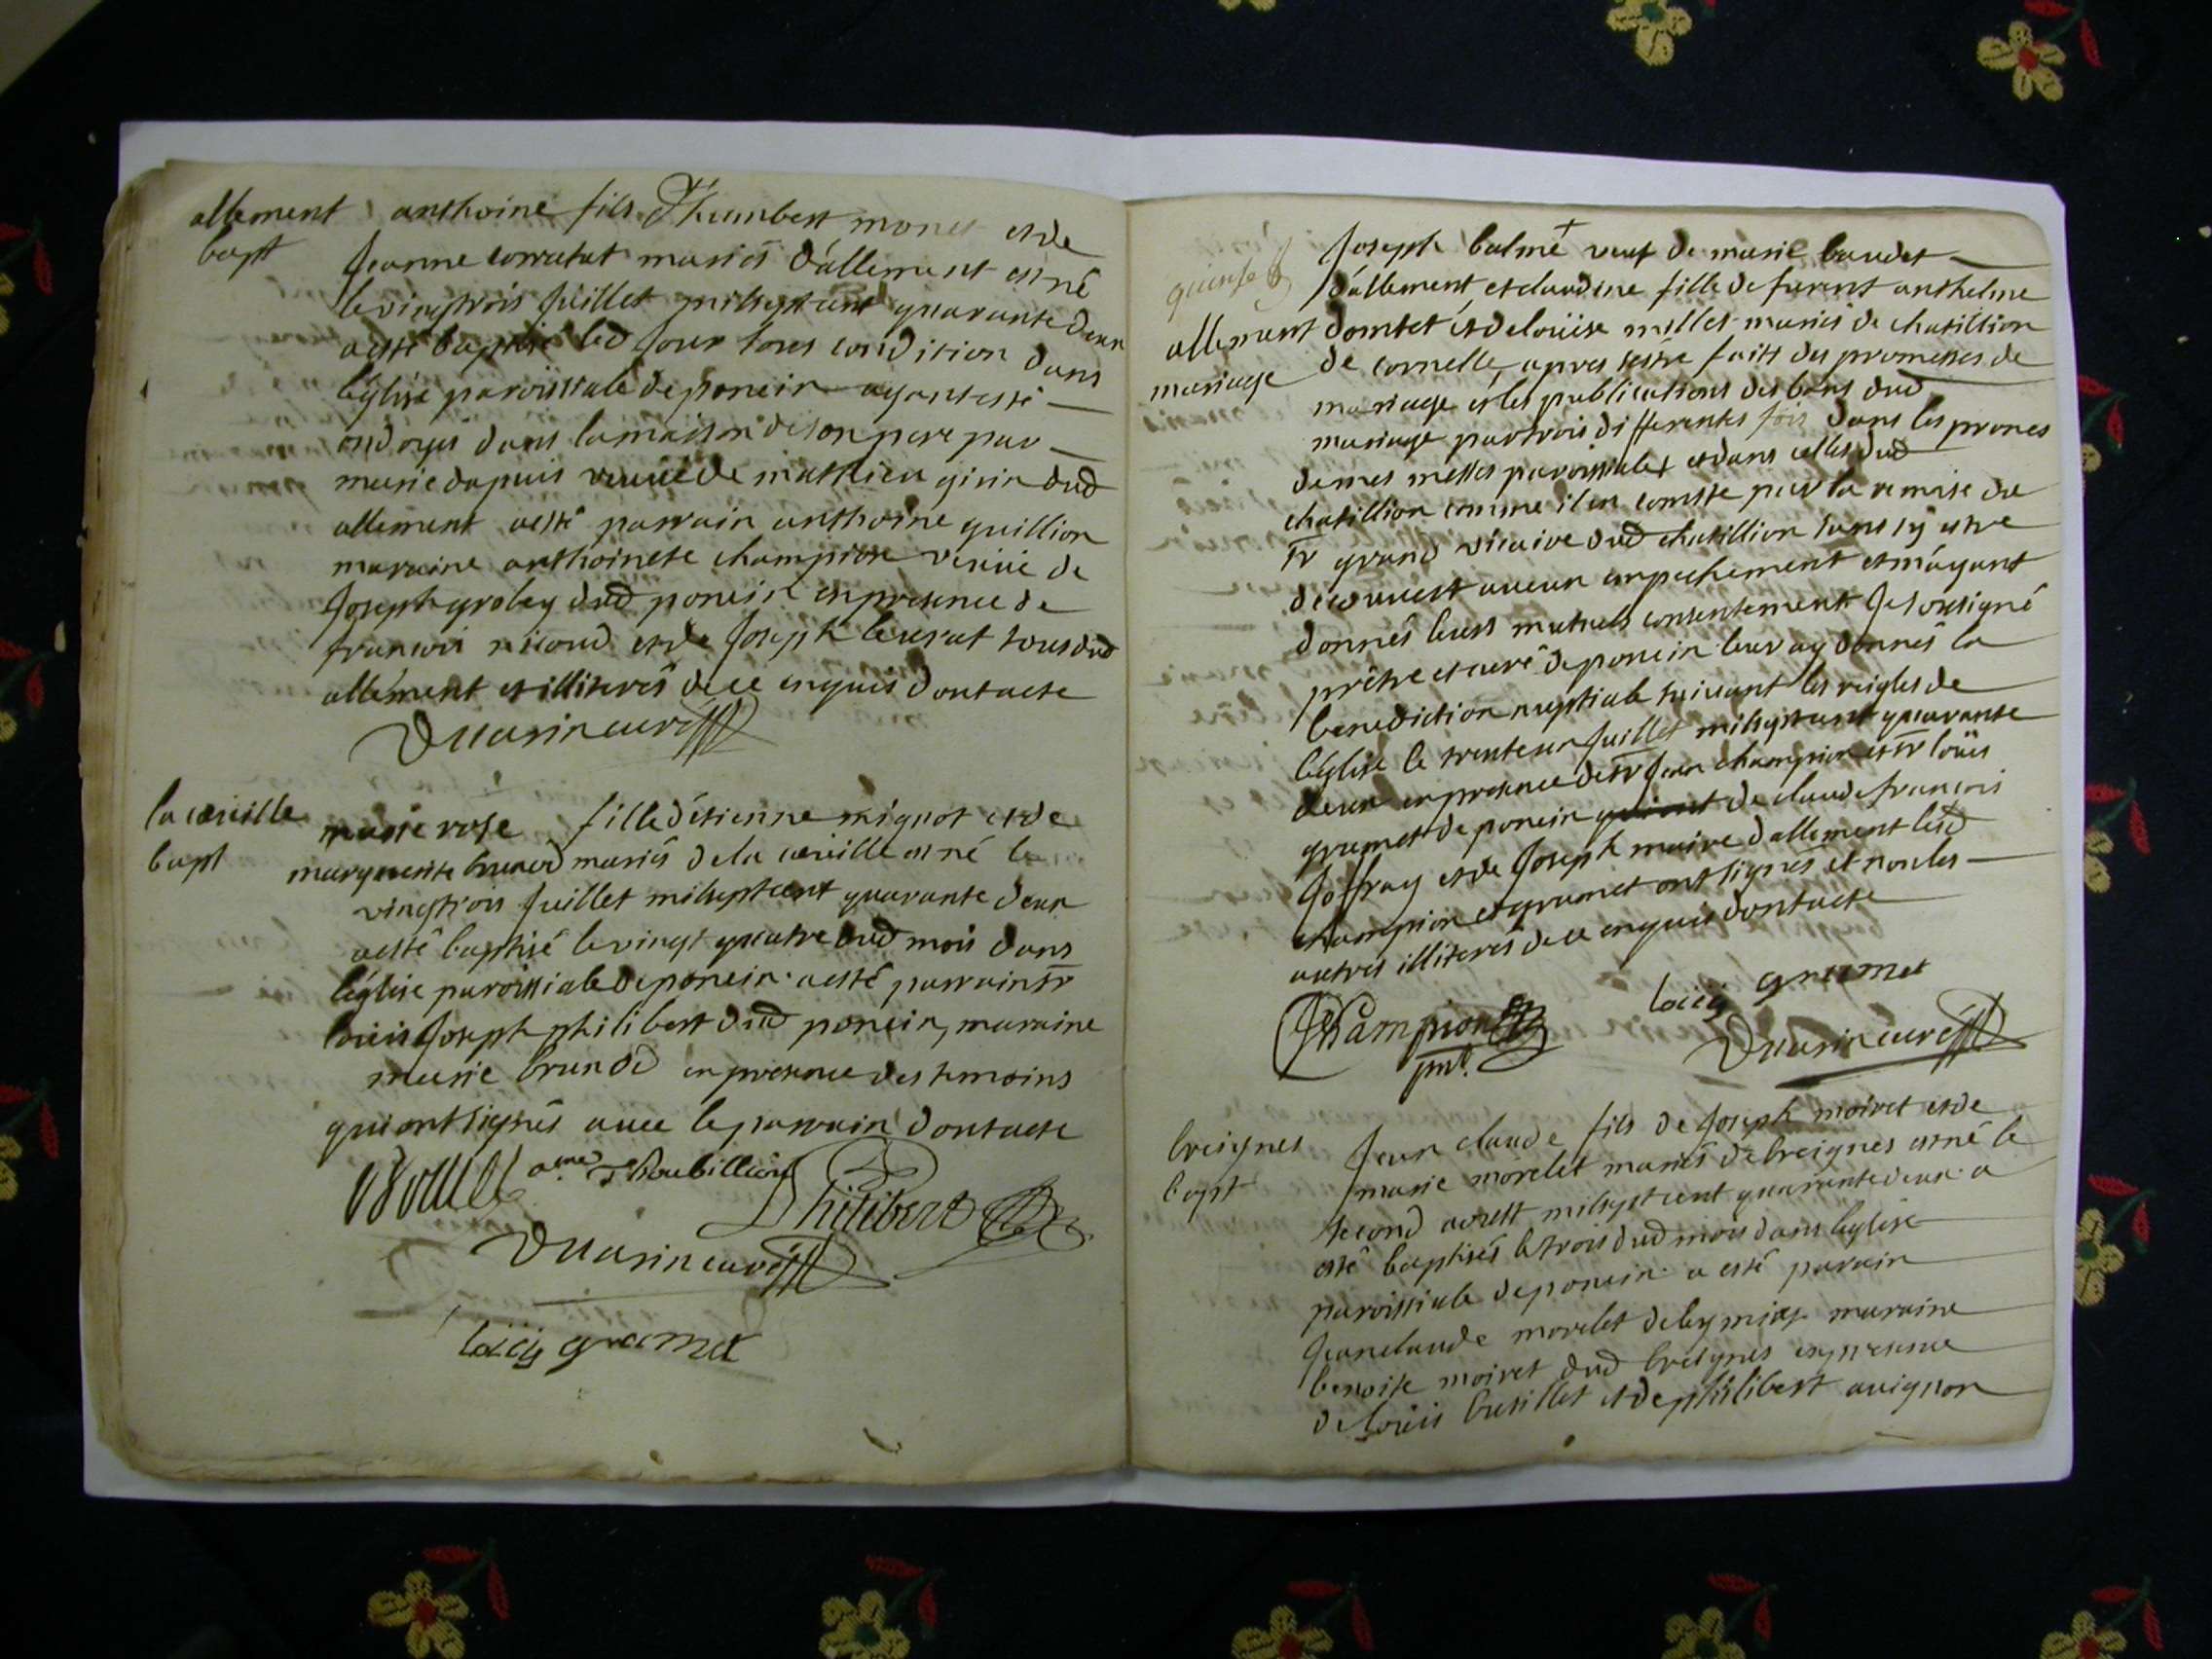 allement
bapt
anthoine fils d'humbert monet et de
Jeanne corratat mariés d'allement est né
le vingtrois Juillet mil sept cent quarante deux
a esté baptisé led Jour sous condition dans
l'église paroissiale de poncin ayant esté
ondoyé dans la maison de son pere par
marie dupuis veuve de mathieu girin dud
allement a esté parrain anthoine guillion
maraine anthoinete champion veuve de
Joseph groley dud poncin en presence de
francois ricoud et de Joseph leurat tous dud
allement et illiterés de ce enquis dont acte
Duarin curé
la cueille
bapt
marie rose fille détienne mignot et de
marguerite brunod mariés de la cueille est né le
vingtrois Juillet mil sept cent quarante deux
a esté baptisé le vingt quatre dud mois dans
l'église paroissiale de poncin a esté parrain sr
louis Joseph philibert dud poncin, maraine
marie brunod en presence des temoins
qui ont signés avec le parrain dont acte
Philibert
Duarin curé
loüis grumet
allement
mariage
Joseph balme + veuf de marie baudet
d'allement et claudine fille de furent anthelme
domtet et de loüise millet mariés de chatillion
de cornelle, apres sestre faitt des promesses de
mariage et les publications des bans dud
mariage par trois differentes fois dans les prones
de mes messes paroissiales et dans celles dud
chatillion comme il en comste par la remise du
sr grand vicaire dud chatillion sans sy estre
decouvert aucun enpechement et m'ayant
donnés leurs mutuels consentement Je soussigné
prêtre et curé de poncin leur ay donnés la
benediction nuptiale suivant les reigles de
l'église le trente un Juillet mil sept cent quarante
deux en presence de sr Jean champion et sr loüis
grumet de poncin de claude francois
Joffray et de Joseph maire d'allement lesd
champion et grumet ont signés et non les
autres illiterés de ce enquis dont acte
JChampion
loüis grumet
Duarin curé
breignes
bapt
Jean claude fils de Joseph moiret et de
marie morelet mariés de breignes est né le
second aoust mil sept cent quarante deux a
esté baptisés le trois dud mois dans leglise
paroissiale de poncin a esté parain
Jean claude morelet maraine
benoite moiret dud breignes en presence
de loüis busillet et de philibert avignon